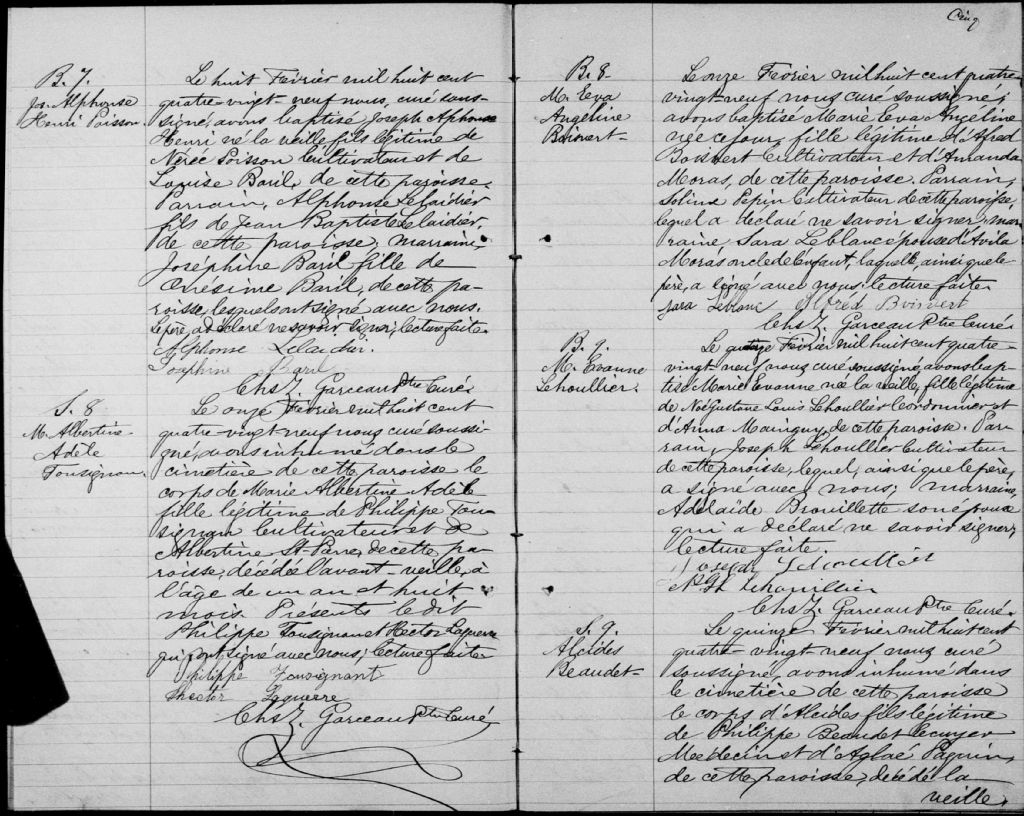 B. 7.
Jos. Alphonse
Henri Poisson.
Le huit Février mil huit cent
quatre-vingt-neuf nous, curé sous-
signé, avons baptisé Joseph Alphonse
Henri né la veille fils légitime de
Nérée Poisson Cultivateur et de
Louise Baril, de cette paroisse.
Parrain, Alphonse Lelaidier
fils de Jean Baptiste Lelaidier,
de cette paroisse, marraine,
Joséphine Baril fille de
Onésime Baril, de cette pa-
roisse, lesquels ont signé avec nous.
Le père, a déclaré ne savoir signer, lecture faite.
Alphonse Lelaidier.
Joséphine Baril
Chs Z. Garceau Ptre Curé
S. 8
M. Albertine
Adèle
Tousignan.
Le onze Février mil huit cent
quatre-vingt-neuf nous curé soussi-
gné, avons inhumé dans le
cimetière de cette paroisse le
corps de Marie Albertine Adèle
fille légitime de Philippe Tou-
signan Cultivateur et de
Albertine St-Pierre, de cette pa-
roisse, décédée l'avant-veille, à
l'âge de un an et huit
mois. Présents le dit
Philippe Tousignan et Hector Laguerre
qui ont signé avec nous, lecture faite.
Philippe Tousignant
Hector Laguerre
Chs Z. Garceau Ptre Curé
Cinq
B. 8
M. Eva
Angéline
Boisvert
Le onze Février mil huit cent quatre-
vingt-neuf nous curé soussigné,
avons baptisé Marie Eva Angéline
née ce jour, fille légitime d'Alfred
Boisvert Cultivateur et d'Amanda
Moras, de cette paroisse. Parrain,
Solime Pepin Cultivateur de cette paroisse,
lequel a déclaré ne savoir signer, mar-
raine Sara Leblanc épouse d'Avila
Moras oncle de l'enfant, laquelle, ainsi que le
père, a signé avec nous. lecture faite.
Sara Leblanc Alfred Boisvert
Chs Z. Garceau Ptre Curé.
B. 9.
M. Evanne
Lehoullier.
Le Février mil huit cent quatre-
vingt neuf nous curé soussigné avons bap-
tisé Marie Evanne née la veille, fille légitime
de Noé Gustave Louis Lehoullier Cordonnier et
d'Anna de cette paroisse. Par-
rain, Joseph Lehoullier Cultivateur
de cette paroisse, lequel, ainsi que le père,
a signé avec nous; marraine,
Adélaïde Brouillette son épouse
qui a déclaré ne savoir signer,
lecture faite.
Joseph Lehoullier
Lehoullier
Chs Z. Garceau Ptre Curé.
S. 9.
Alcides
Beaudet
Le quinze Février mil huit cent
quatre-vingt neuf nous curé
soussigné, avons inhumé dans
le cimetière de cette paroisse
le corps d'Alcides fils légitime
de Philippe Beaudet Ecuyer
Médecin et d'Aglaé Paquin,
de cette paroisse, décédé la
veille,